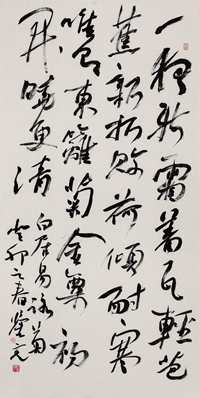 一夜新霜著瓦轻芭
蕉新折败荷倾耐寒
唯有东篱菊金粟初
开晓更清
白居易咏菊
癸卯之春